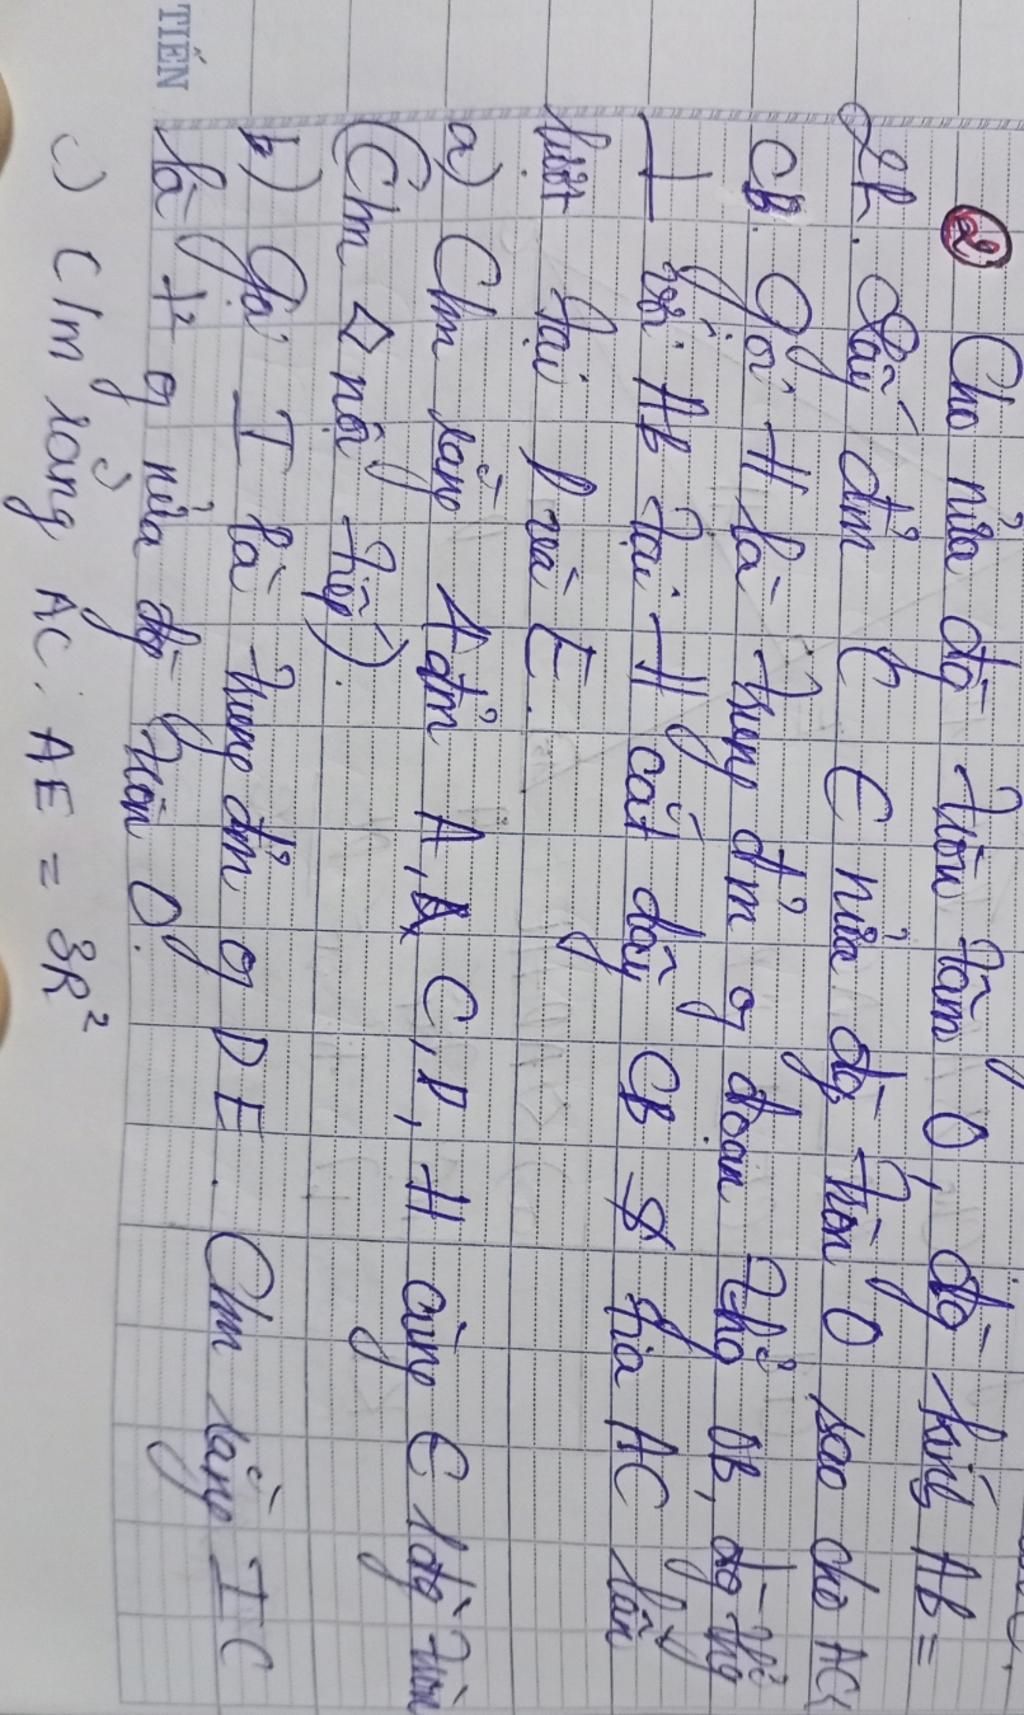 ② Cho nửa đg tròn tâm O, đg kính AB =
2R. Lấy điểm C ∈ nửa đg tròn O sao cho AC <
CB. Gọi H là trung đm of đoạn thg OB, đg thg
⊥ với AB tại H cắt dây CB & tia AC lần
lượt tại D và E.
a) Cm rằng 4 đm A, C, D, H cùng ∈ 1 đg tròn
(Cm ◇ nội tiếp).
b) Gọi I là trung đm of DE. Cm rằng IC
là t² of nửa đg tròn O.
c) C/m rằng AC . AE = 3R²
TIẾN